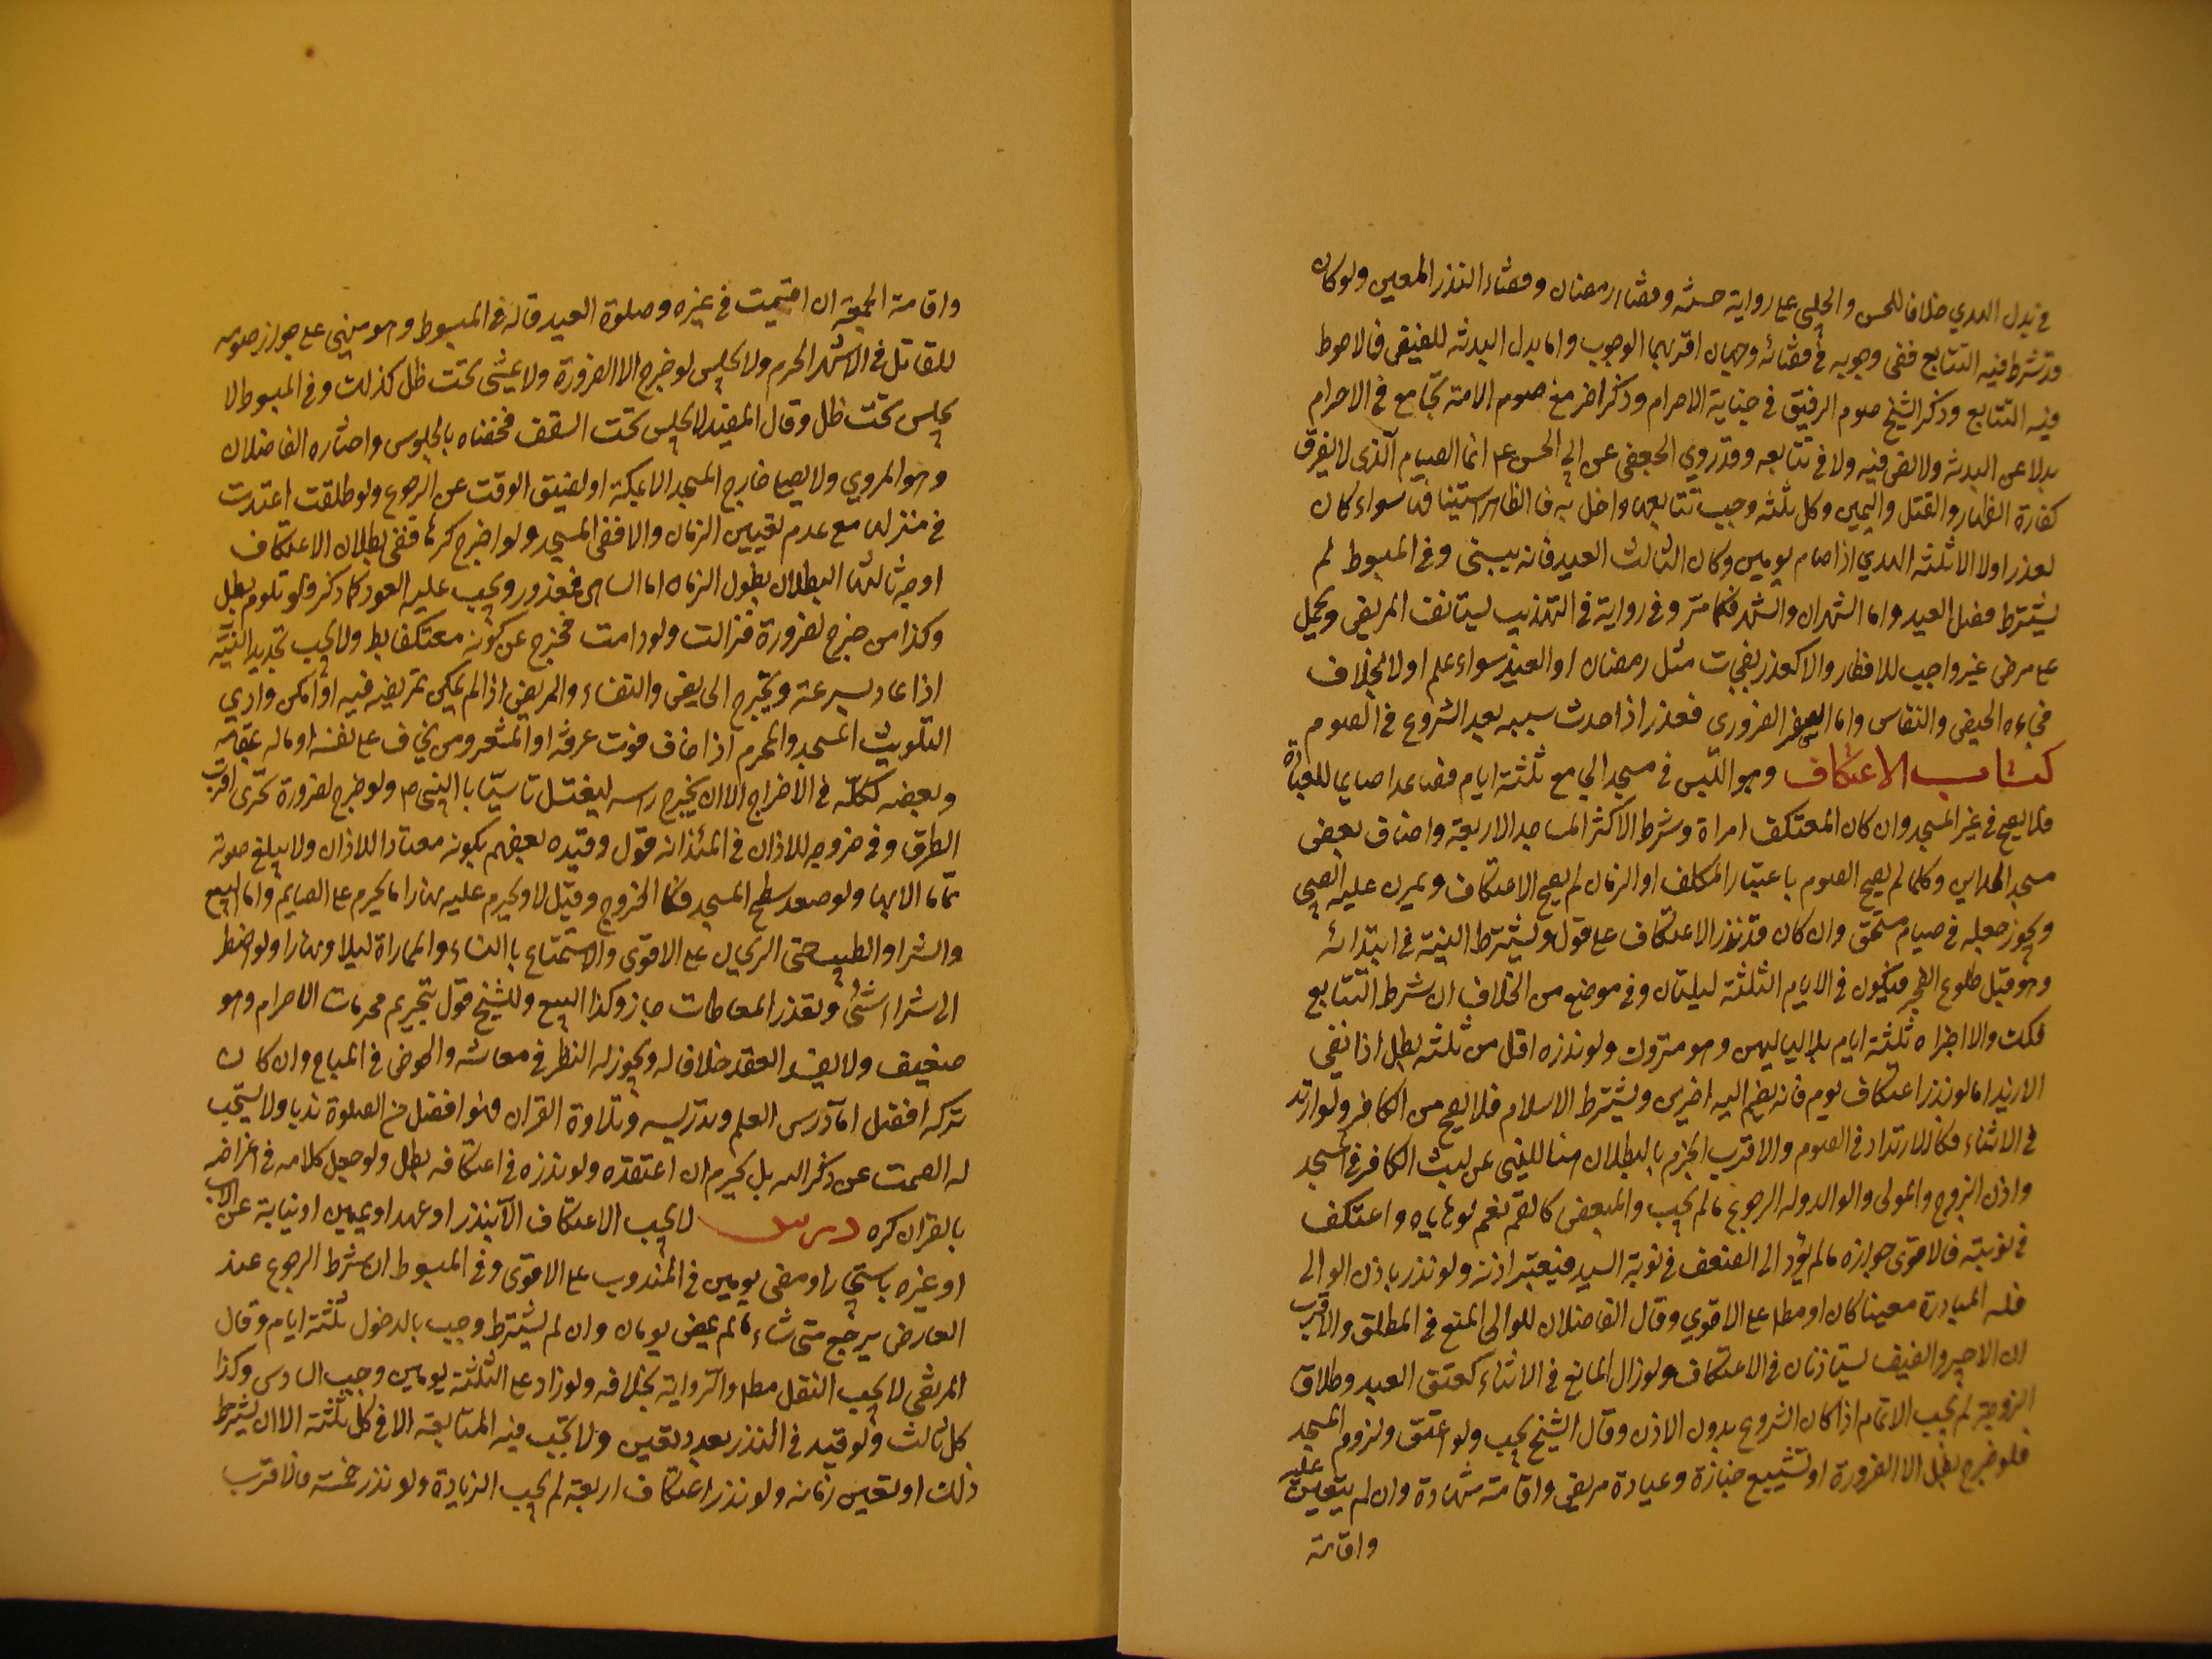 في بدل الهدي خلافا للحسن والحلبي على رواية حسنة وقضاء رمضان وقضاء النذر المعين ولو كان
قد شرط فيه التتابع ففي وجوبه في قضائه وجهان اقربهما الوجوب واما بدل البدنة للفيض فالاحوط
فيه التتابع وذكر الشيخ صوم الرقيق في جناية الاحرام وذكر اخر مع صوم الامة تجامع في الاحرام
بدلا عن البدنة ولا نص فيه ولا في تتابعه وقد روي الجعفي عن ابي الحسن ع انما الصيام الذي لا يفرق
كفارة الظهار والقتل واليمين وكل ثلثة وجب تتابعها واخل به فالظاهر استينافها سواء كان
لعذر او لا الا ثلثة الهدي اذا صام يومين وكان الثالث العيد فانه يبني وفي المبسوط لم
يشترط فصل العيد واما الشهران والشهر فكما مر وفي رواية في التهذيب يستانف المريض ويحمل
على مرض غير واجب للافطار والا كعذر يفجات مثل رمضان او العيد سواء علم او لا بخلاف
فجاءه الحيض والنفاس واما السفر الضروري فعذر اذا حدث سببه بعد الشروع في الصوم
كتاب الاعتكاف وهو اللبث في مسجد الجامع ثلثة ايام فصاعدا صايما للعبادة
فلا يصح في غير المسجد وان كان المعتكف امراة وشرط الاكثر المساجد الاربعة واضاف بعض
مسجد المداين وكلما لم يصح الصوم باعتبار المكلف او الزمان لم يصح الاعتكاف وتمرين عليه الصبي
ويجوز جعله في صيام مستحق وان كان قد نذر الاعتكاف على قول ويشترط النية في ابتدائه
وهو قبل طلوع الفجر فيكون في الايام الثلثة ليلتان وفي موضع من الخلاف ان شرط التتابع
فكك والا اجزاه ثلثة ايام بلا لياليهن وهو متروك ولو نذره اقل من ثلثة بطل اذا نفى
الازيد اما لو نذر اعتكاف يوم فانه يضم اليه اخرين ويشترط الاسلام فلا يصح من الكافر ولو ارتد
في الاثناء فكالارتداد في الصوم والاقرب الجزم بالبطلان هنا للنهي عن لبث الكافر في المسجد
واذن الزوج والمولى والوالد وله الرجوع مالم يجب والمبعض كالقم نعم لو هاياه واعتكف
في نوبته فالاقوى جوازه مالم يؤد الى الضعف في نوبة السيد فيعتبر اذنه ولو نذر باذن الوالي
فله المبادرة معينا كان او مطلقا على الاقوي وقال الفاضلان للوالي المنع في المطلق والاقرب
ان الاجير والضيف يستاذنان في الاعتكاف ولو زال المانع في الاثناء كعتق العبد وطلاق
الزوجة لم يجب الاتمام اذا كان الشروع بدون الاذن وقال الشيخ يجب ولو اعتق ولزوم المسجد
فلو خرج بطل الا لضرورة او تشييع جنازة وعيادة مريض واقامة شهادة وان لم يتعين عليه
واقامة
واقامة الجمعة ان اقيمت في غيره وصلوة العيد قاله في المبسوط وهو مبني على جواز صومه
للقاتل في الاشهر الحرم ولا يجلس لو خرج الا لضرورة ولا يمشي تحت ظل كذلك وفي المبسوط لا
يجلس تحت ظل وقال المفيد لا يجلس تحت السقف فخصناه بالجلوس واختاره الفاضلان
وهو المروي ولا يصلي خارج المسجد الا بمكة او لضيق الوقت عن الرجوع ولو طلقت اعتدت
في منزلها مع عدم تعيين الزمان والا ففي المسجد ولو اخرج كرها ففي بطلان الاعتكاف
اوجه ثالثها البطلان بطول الزمان اما الساهي فمعذور ويجب عليه العود كما ذكر ولو تلوم بطل
وكذا من خرج لضرورة فزالت ولو دامت فخرج عن كونه معتكفا بطل ولا يجب تجديد النية
اذا عاد بسرعة ويخرج الحايض والنفساء والمريض اذا لم يمكن تمريضه فيه او امكن وادي
التلويث المسجد والمحرم اذا خاف فوت عرفة او المشعر ومن يخاف على نفسه او ماله بمقامه
وبعضه ككله في الاخراج الا ان يخرج راسه ليغتسل تاسيا بالنبي ص ولو خرج لضرورة تحرى اقرب
الطرق وفي خروجه للاذان في المئذنه قول وقيده بعضهم بكونه معتادا للاذان ولا يبلغ صوته
تماما الا بها ولو صعد سطح المسجد فكالخروج وقيل لا ويحرم عليه نهارا ما يحرم على الصايم واما البيع
والشرا والطيب حتى الريحان على الاقوى والاستمتاع بالنساء والمماراة ليلا ونهارا ولو اضطر
الى شراء شئ وتعذر المعاطات جاز وكذا البيع وللشيخ قول بتحريم محرمات الاحرام وهو
ضعيف ولا يفسد العقد خلافا له ويجوز له النظر في معاشه والخوض في المباح وان كان
تركه افضل اما درس العلم وتدريسه وتلاوة القران فهو افضل من الصلوة ندبا ولا يستحب
له الصمت عن ذكر الله بل يحرم ان اعتقده ولو نذره في اعتكافه بطل ولو جعل كلامه في اغراضه
بالقران كره درس لا يجب الاعتكاف الا بنذر او عهد او يمين او نيابة عن الاب
او غيره باستيجار او مضى يومين في المندوب على الاقوى وفي المبسوط ان شرط الرجوع عند
العارض يرجع متى شاء مالم يمض يومان وان لم يشترط وجب بالدخول ثلثة ايام وقال
المرتضى لا يجب النفل مطلقا والرواية بخلافه ولو زاد على الثلثة يومين وجب السادس وكذا
كل ثالث ولو قيد في النذر بعدد تعين ولا تجب فيه المتابعة الا في كل ثلثة الا ان يشترط
ذلك او تعين زمانه ولو نذر اعتكاف اربعة لم يجب الزيادة ولو نذر خمسة فالاقرب